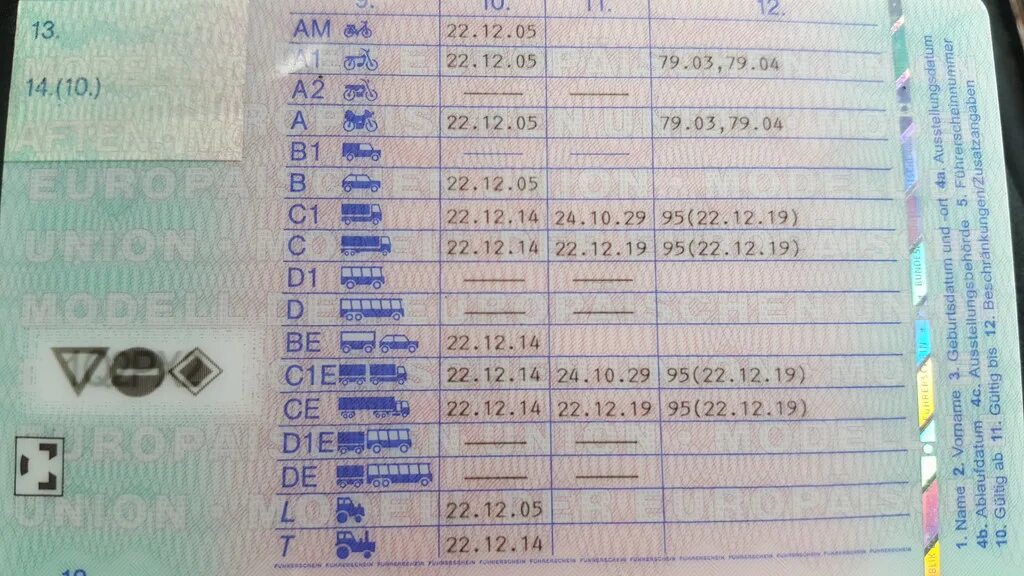 9. 10. 11. 12.
13.
14.(10.)
AM 22.12.05
A1 22.12.05 79.03,79.04
A2 — —
A 22.12.05 79.03,79.04
B1 — —
B 22.12.05
C1 22.12.14 24.10.29 95(22.12.19)
C 22.12.14 22.12.19 95(22.12.19)
D1 — —
D — —
BE 22.12.14
C1E 22.12.14 24.10.29 95(22.12.19)
CE 22.12.14 22.12.19 95(22.12.19)
D1E — —
DE — —
L 22.12.05
T 22.12.14
FÜHRERSCHEIN FÜHRERSCHEIN FÜHRERSCHEIN FÜHRERSCHEIN
1. Name 2. Vorname 3. Geburtsdatum und -ort 4a. Ausstellungsdatum
4b. Ablaufdatum 4c. Ausstellungsbehörde 5. Führerscheinnummer
10. Gültig ab 11. Gültig bis 12. Beschränkungen/Zusatzangaben